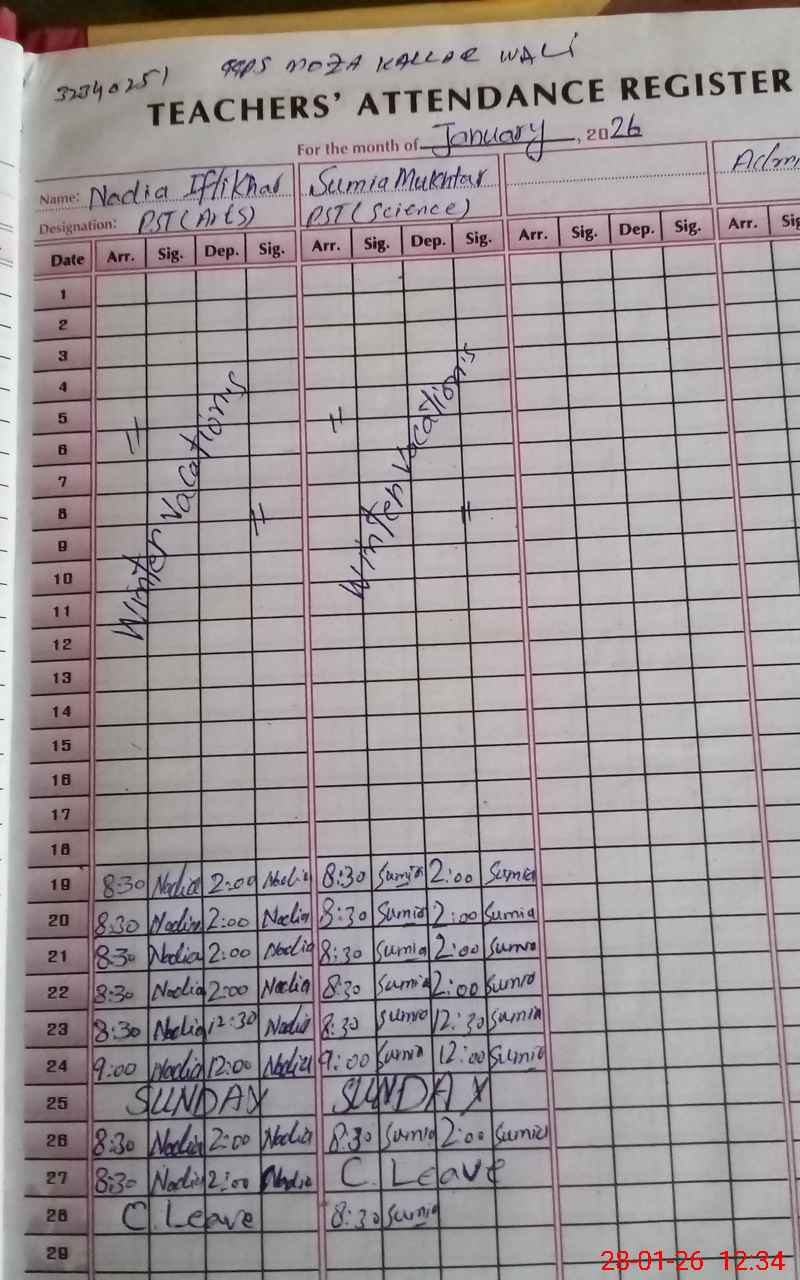 32340251 GGPS MOZA KALLAR WALI
TEACHERS' ATTENDANCE REGISTER
For the month of January, 2026
Name: Nadia Iftikhar Sumia Mukhtar
Designation: PST (Arts) PST (Science)
Date Arr. Sig. Dep. Sig. Arr. Sig. Dep. Sig. Arr. Sig. Dep. Sig. Arr.
1
2
3
4
5
6
7
8
9
10
11
12
13
14
15
16
17
18
Winter Vacations Winter Vacations
19 8:30 Nadia 2:00 Nadia 8:30 Sumia 2:00 Sumia
20 8:30 Nadia 2:00 Nadia 8:30 Sumia 2:00 Sumia
21 8:30 Nadia 2:00 Nadia 8:30 Sumia 2:00 Sumia
22 8:30 Nadia 2:00 Nadia 8:30 Sumia 2:00 Sumia
23 8:30 Nadia 12:30 Nadia 8:30 Sumia 12:30 Sumia
24 9:00 Nadia 12:00 Nadia 9:00 Sumia 12:00 Sumia
25 SUNDAY SUNDAY
26 8:30 Nadia 2:00 Nadia 8:30 Sumia 2:00 Sumia
27 8:30 Nadia 2:00 Nadia C. Leave
28 C. Leave 8:30 Sumia
29
28-01-26 12:34